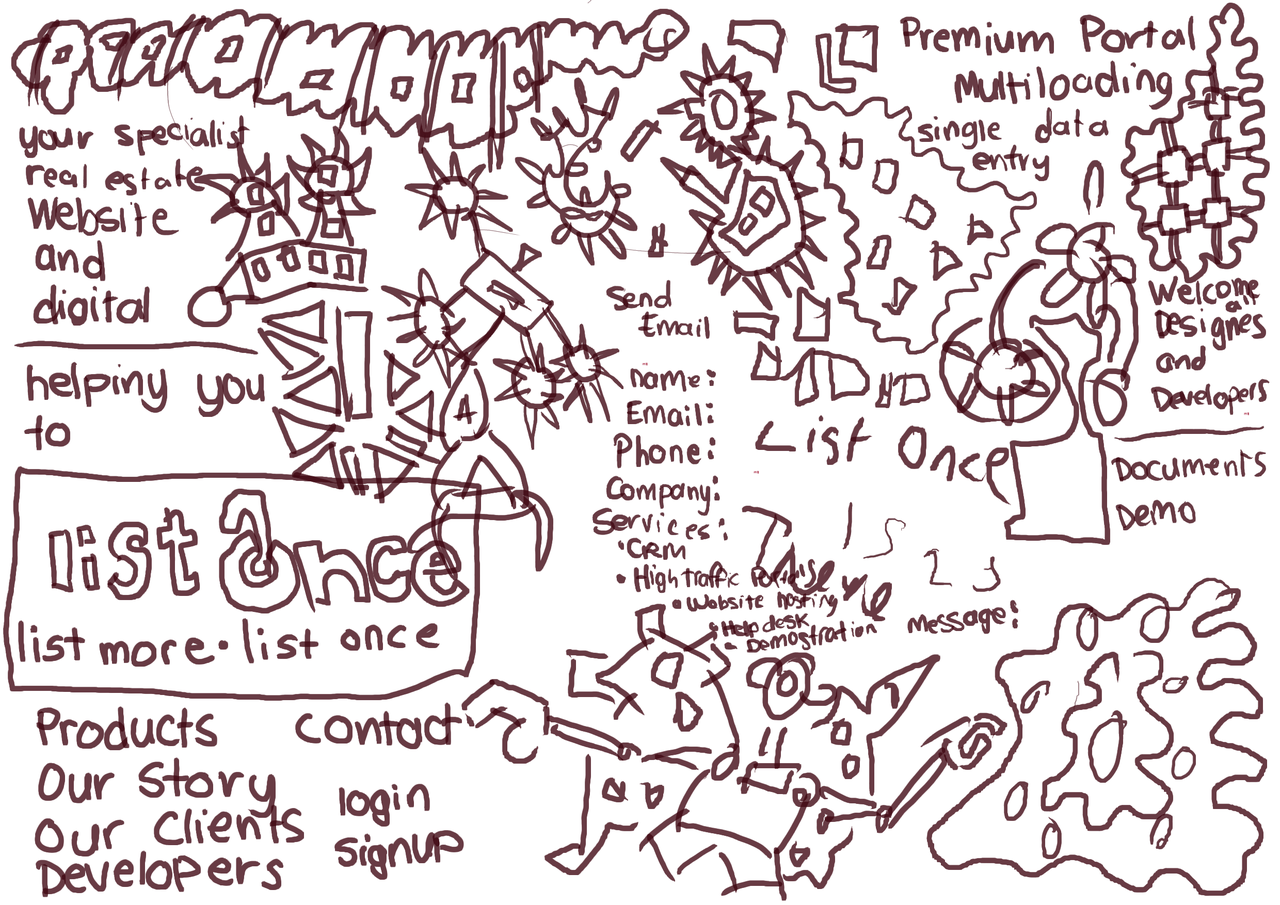 your specialist
real estate
Website
and
digital
helpiny you
to
list once
list more • list once
Products
Our Story
Our Clients
Developers
contact
login
signup
A
Send
Email
name:
Email:
Phone:
Company:
Services:
• CRM
• High traffic
• Wobsite hosting
• Help desk
• Demostration
message:
List Once
Premium Portal
Multiloading
single data
entry
Welcome
Designes
and
Developers
Documents
Demo